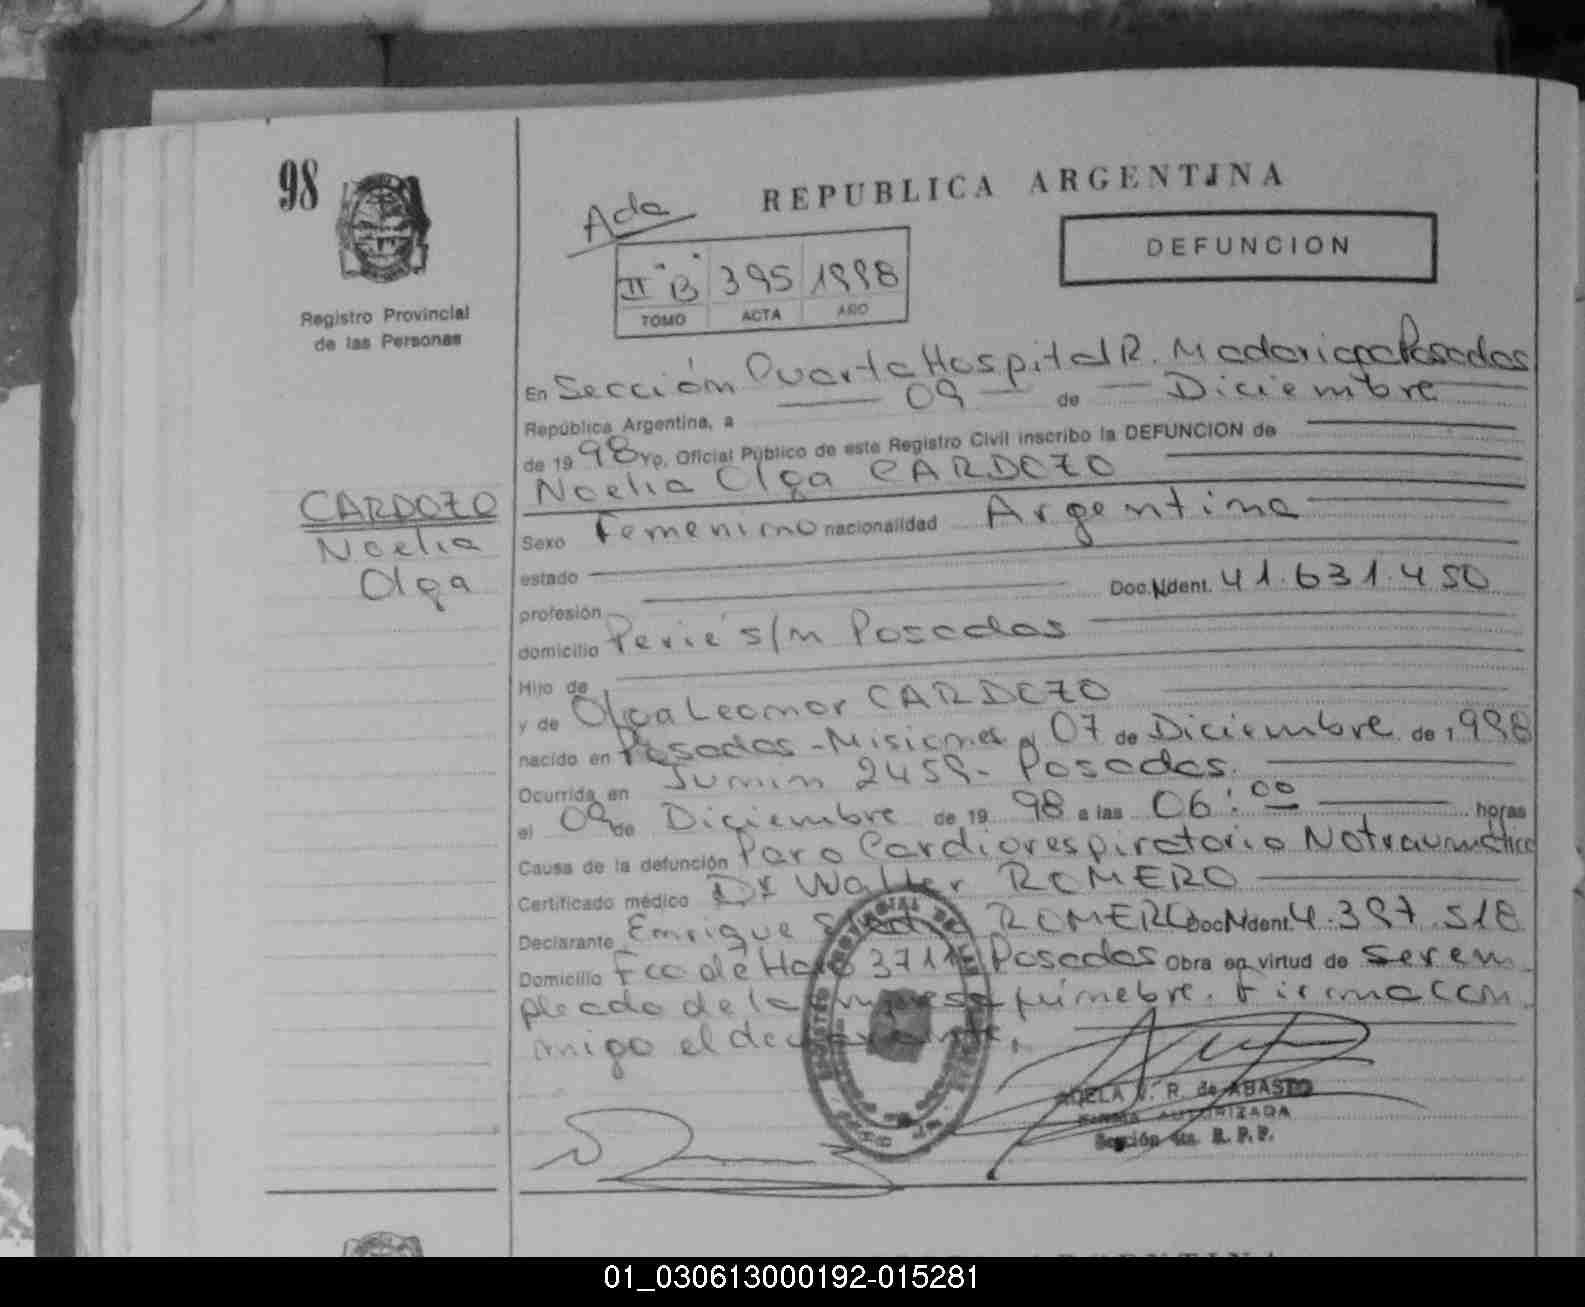 98
REPUBLICA ARGENTINA
Ada
DEFUNCION
II "B" 395 1998
TOMO ACTA AÑO
Registro Provincial
de las Personas
En Sección Cuarta Hospital R. Madariaga Posadas
República Argentina, a 09 de Diciembre
de 19 98 Yo, Oficial Público de este Registro Civil inscribo la DEFUNCION de
Noelia Olga CARDOZO
CARDOZO
Noelia
Olga
Sexo Femenino nacionalidad Argentina
estado
profesión Doc. Ident. 41.631.450
domicilio Perié s/n Posadas
Hijo de
y de Olga Leonor CARDOZO
nacido en Posadas - Misiones a 07 de Diciembre de 1.998
Ocurrida en Junin 2459 - Posadas.
el 09 de Diciembre de 19 98 a las 06:00 horas
Causa de la defunción Paro Cardiorespiratorio No traumático
Certificado médico Dr Walter ROMERO
Declarante Enrique ROMERO Doc. Ident. 4.397.518
Domicilio Fco de Haro 3711 Posadas Obra en virtud de ser em
pleado de la empresa fúnebre. Firma con
migo el declarante.
ADELA V. R. de ABASTO
FIRMA AUTORIZADA
Sección 4ta. R. P. P.
01_030613000192-015281